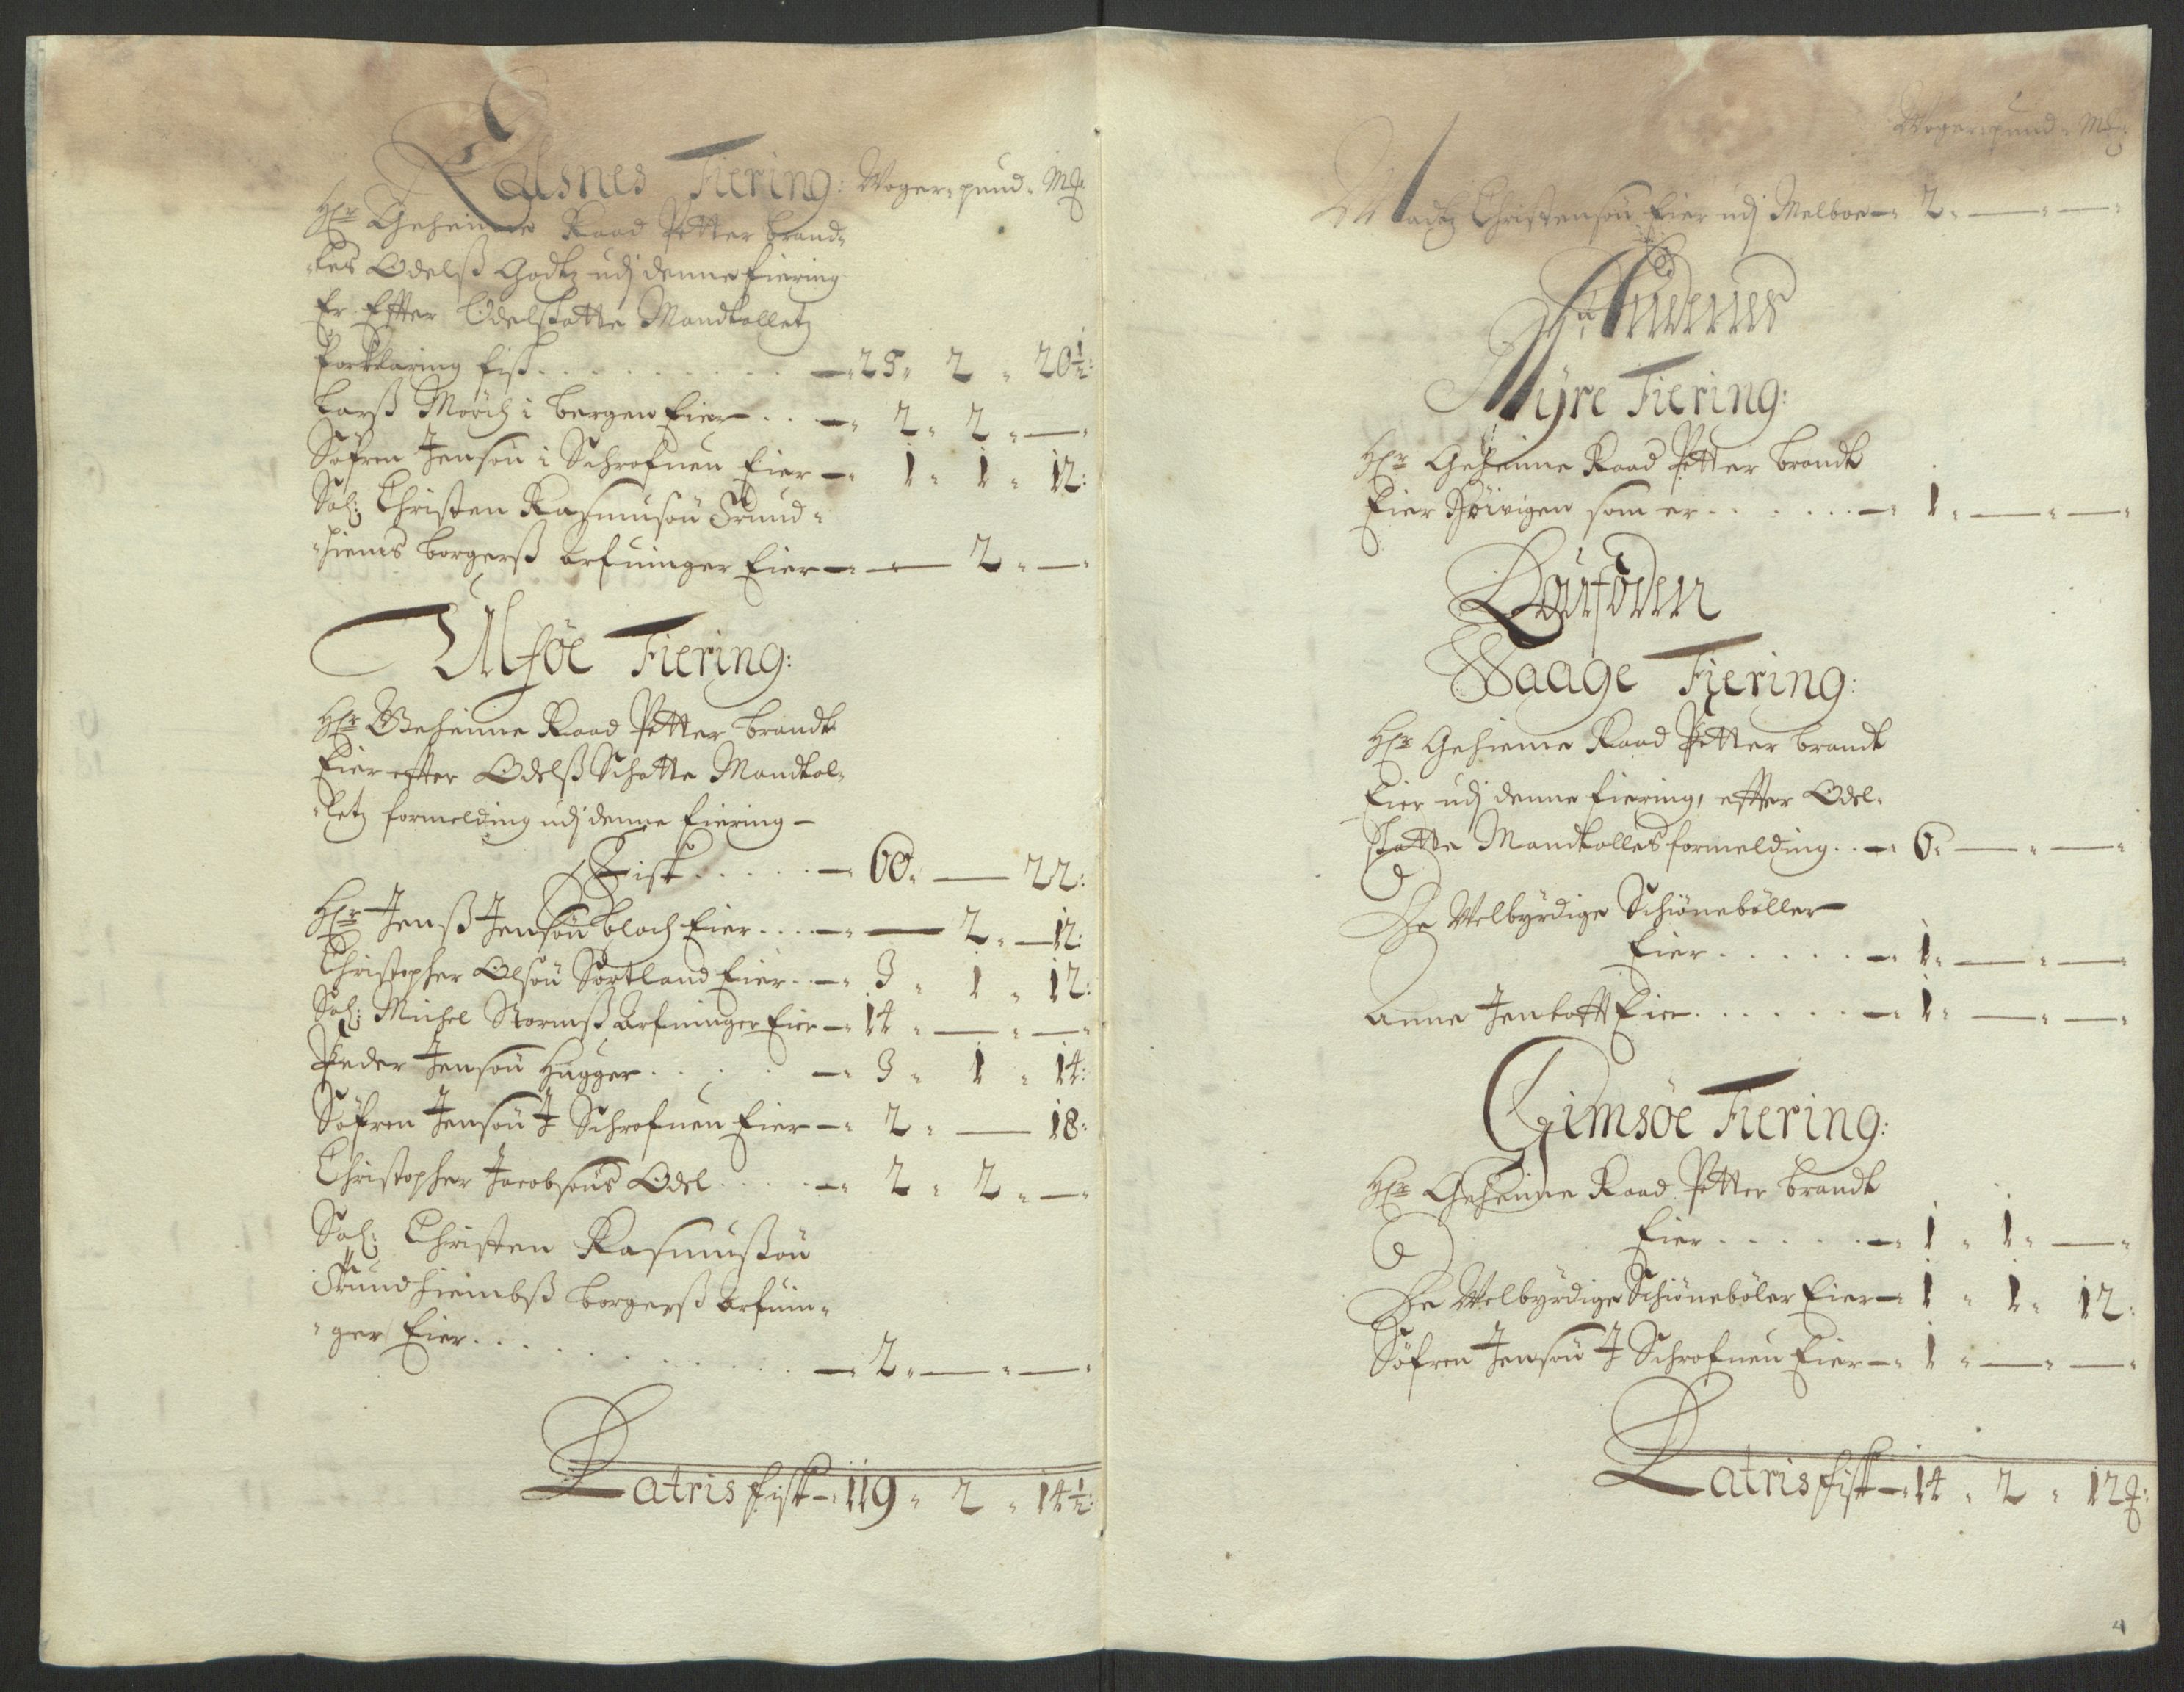 Eidsnes Fiering: Woger = pund = Mꝥ
Hr Geheime Raad Petter Brand=
=tes Odelß Godtz udj denne fiering
Er Effter Odelskatte Mandtalletz
forklaring fisk . . . . . . — 25 = 2 = 20½:
Larß Mörch i bergen Eier . . — 2 = 2 = — =
Söfren Jensön i Schrofuen Eier — 1 = 1 = 12:
Sal: Christen Rasmusön Trund=
=hiems borgerß Arfuinger Eier — — 2 = — =
Ulföe Fiering:
Hr Geheime Raad Petter Brandt
Eier effter Odelß Schatte Mandtal=
=letz formelding udj denne fiering —
Fisk . . . . . — 60 = — 22:
Hr Jenß Jensön bloch Eier . . . — — 2 = 12:
Christopher Olsön Sortland Eier . . — 3 = 1 = 12:
Sal: Michel Stormß Arfuinger Eier — 14 = — = — =
Peder Jensön Hugger . . . . — 3 = 1 = 14:
Söfren Jensön J Schrofuen Eier — 2 = — 18:
Christopher Jacobsöns Odel . . . — 2 = 2 = — =
Sal: Christen Rasmußön
Trundhiembß borgerß Arfuin=
=ger Eier . . . . . . . — 2 = — = — =
Latris fisk — 119 = 2 = 14½:
Woger = pund = Mꝥ
Madtz Christensön Eier udj Melboe — 2 = — = — =
Andenes
Myre Fiering:
Hr Geheime Raad Petter Brandt
Eier som er . . . . . — 1 = — = — =
Loufoden
Waage Fiering:
Hr Geheime Raad Petter Brandt
Eier udj denne fiering, effter Odel=
skatte Mandtalles formelding . . — 6 = — = — =
De Velbyrdige Schiöneböller
Eier . . . . . — 1 = — = — =
Anne Jentofft Eier . . . . . — 1 = — = — =
Gimsöe Fiering:
Hr Geheime Raad Petter Brandt
Eier . . . . . — 1 = 1 = — =
De Velbyrdige Schiöneböler Eier — 1 = 1 = 12:
Söfren Jensön J Schrofuen Eier — 1 = — = — =
Latris fisk — 14 = 2 = 12ꝥ:
4